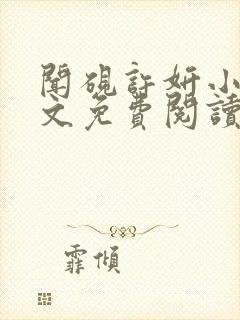 聞硯許妍小
文免費閱讀
霏傾